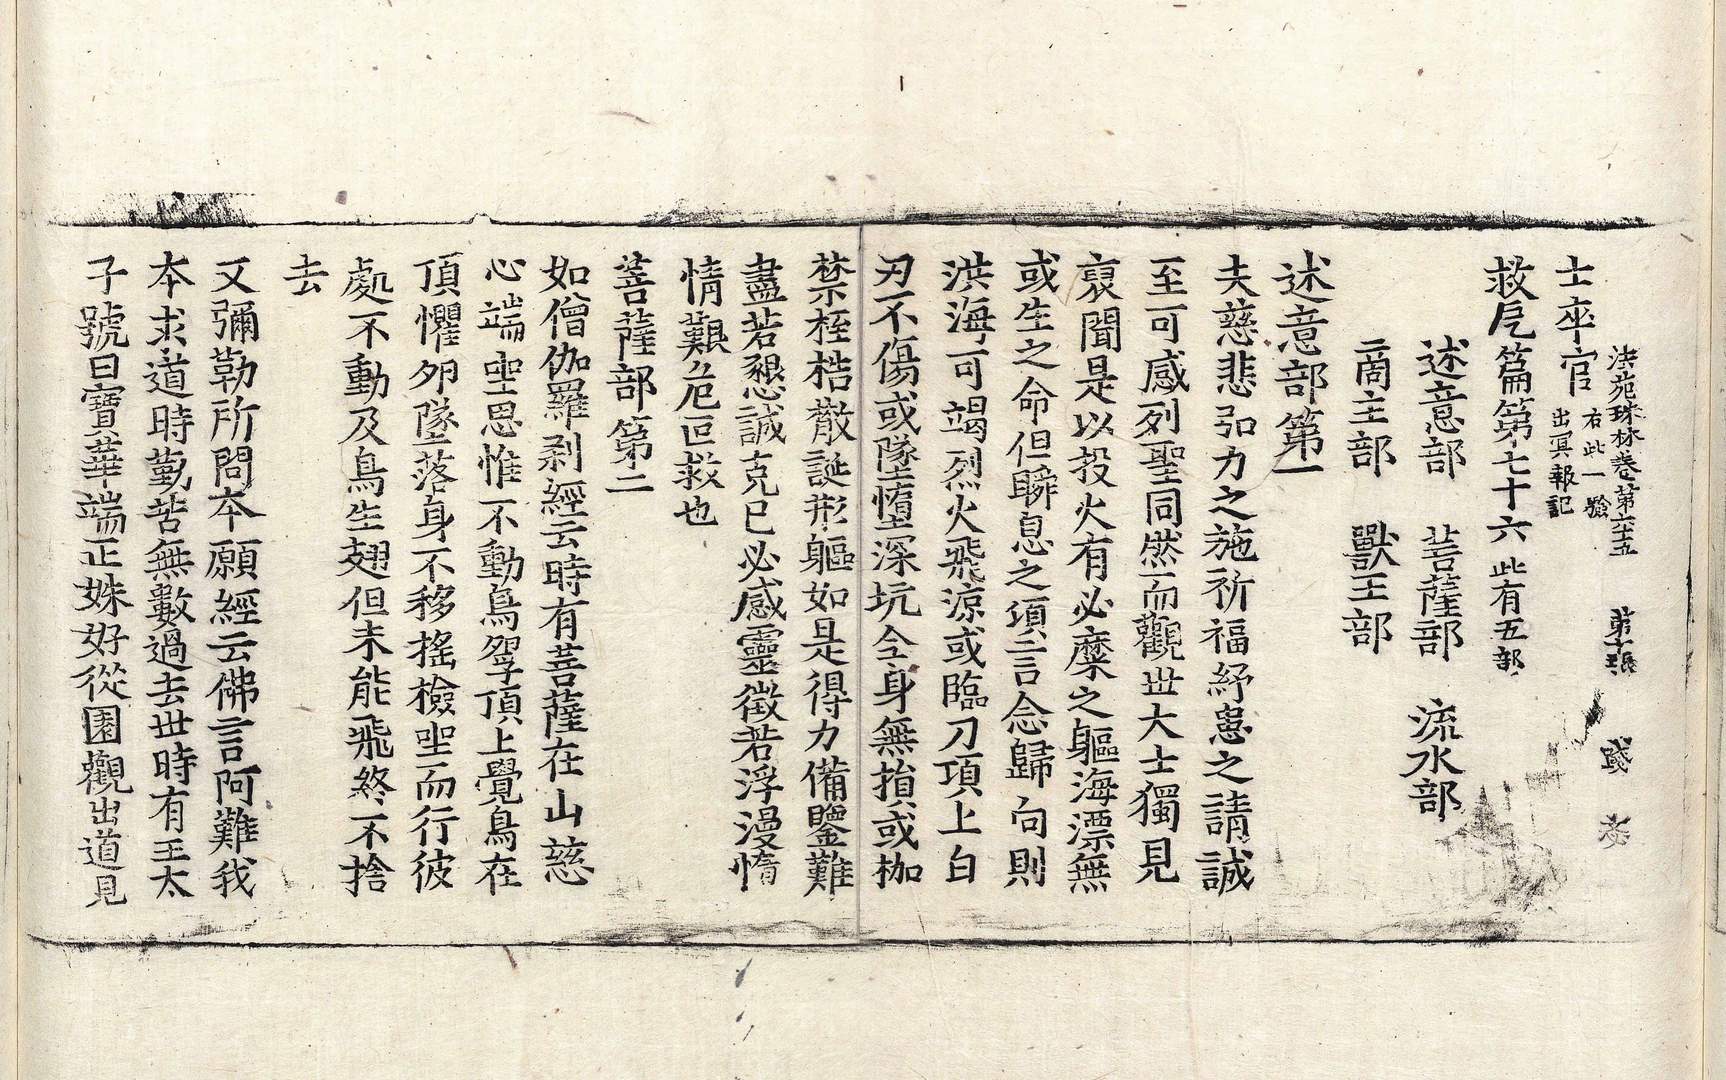 法苑珠林卷第六十五 第十張
士卒官 右此一驗
出冥報記
救厄篇第七十六 此有五部
述意部 菩薩部 流水部
商主部 獸王部
述意部第一
夫慈悲弘力之施祈福紓患之請誠
至可感列聖同然而觀世大士獨見
褒聞是以投火有必糜之軀海漂無
或生之命但瞬息之頃一言念歸向則
洪海可竭烈火飛涼或臨刀項上白
刃不傷或墜墮深坑全身無損或枷
禁桎梏散誕形軀如是得力備鑒難
盡若懇誠克已必感靈徵若浮漫惰
情艱危叵救也
菩薩部第二
如僧伽羅剎經云時有菩薩在山慈
心端坐思惟不動鳥孚頂上覺鳥在
頂懼夘墜落身不移搖檢坐而行彼
處不動及鳥生翅但未能飛終不捨
去
又彌勒所問本願經云佛言阿難我
本求道時勤苦無數過去世時有王太
子號曰寶華端正姝好從園觀出道見